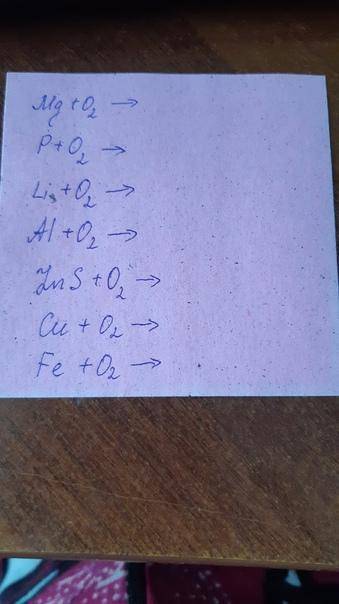 Mg + O₂ →
P + O₂ →
Li + O₂ →
Al + O₂ →
ZnS + O₂ →
Cu + O₂ →
Fe + O₂ →